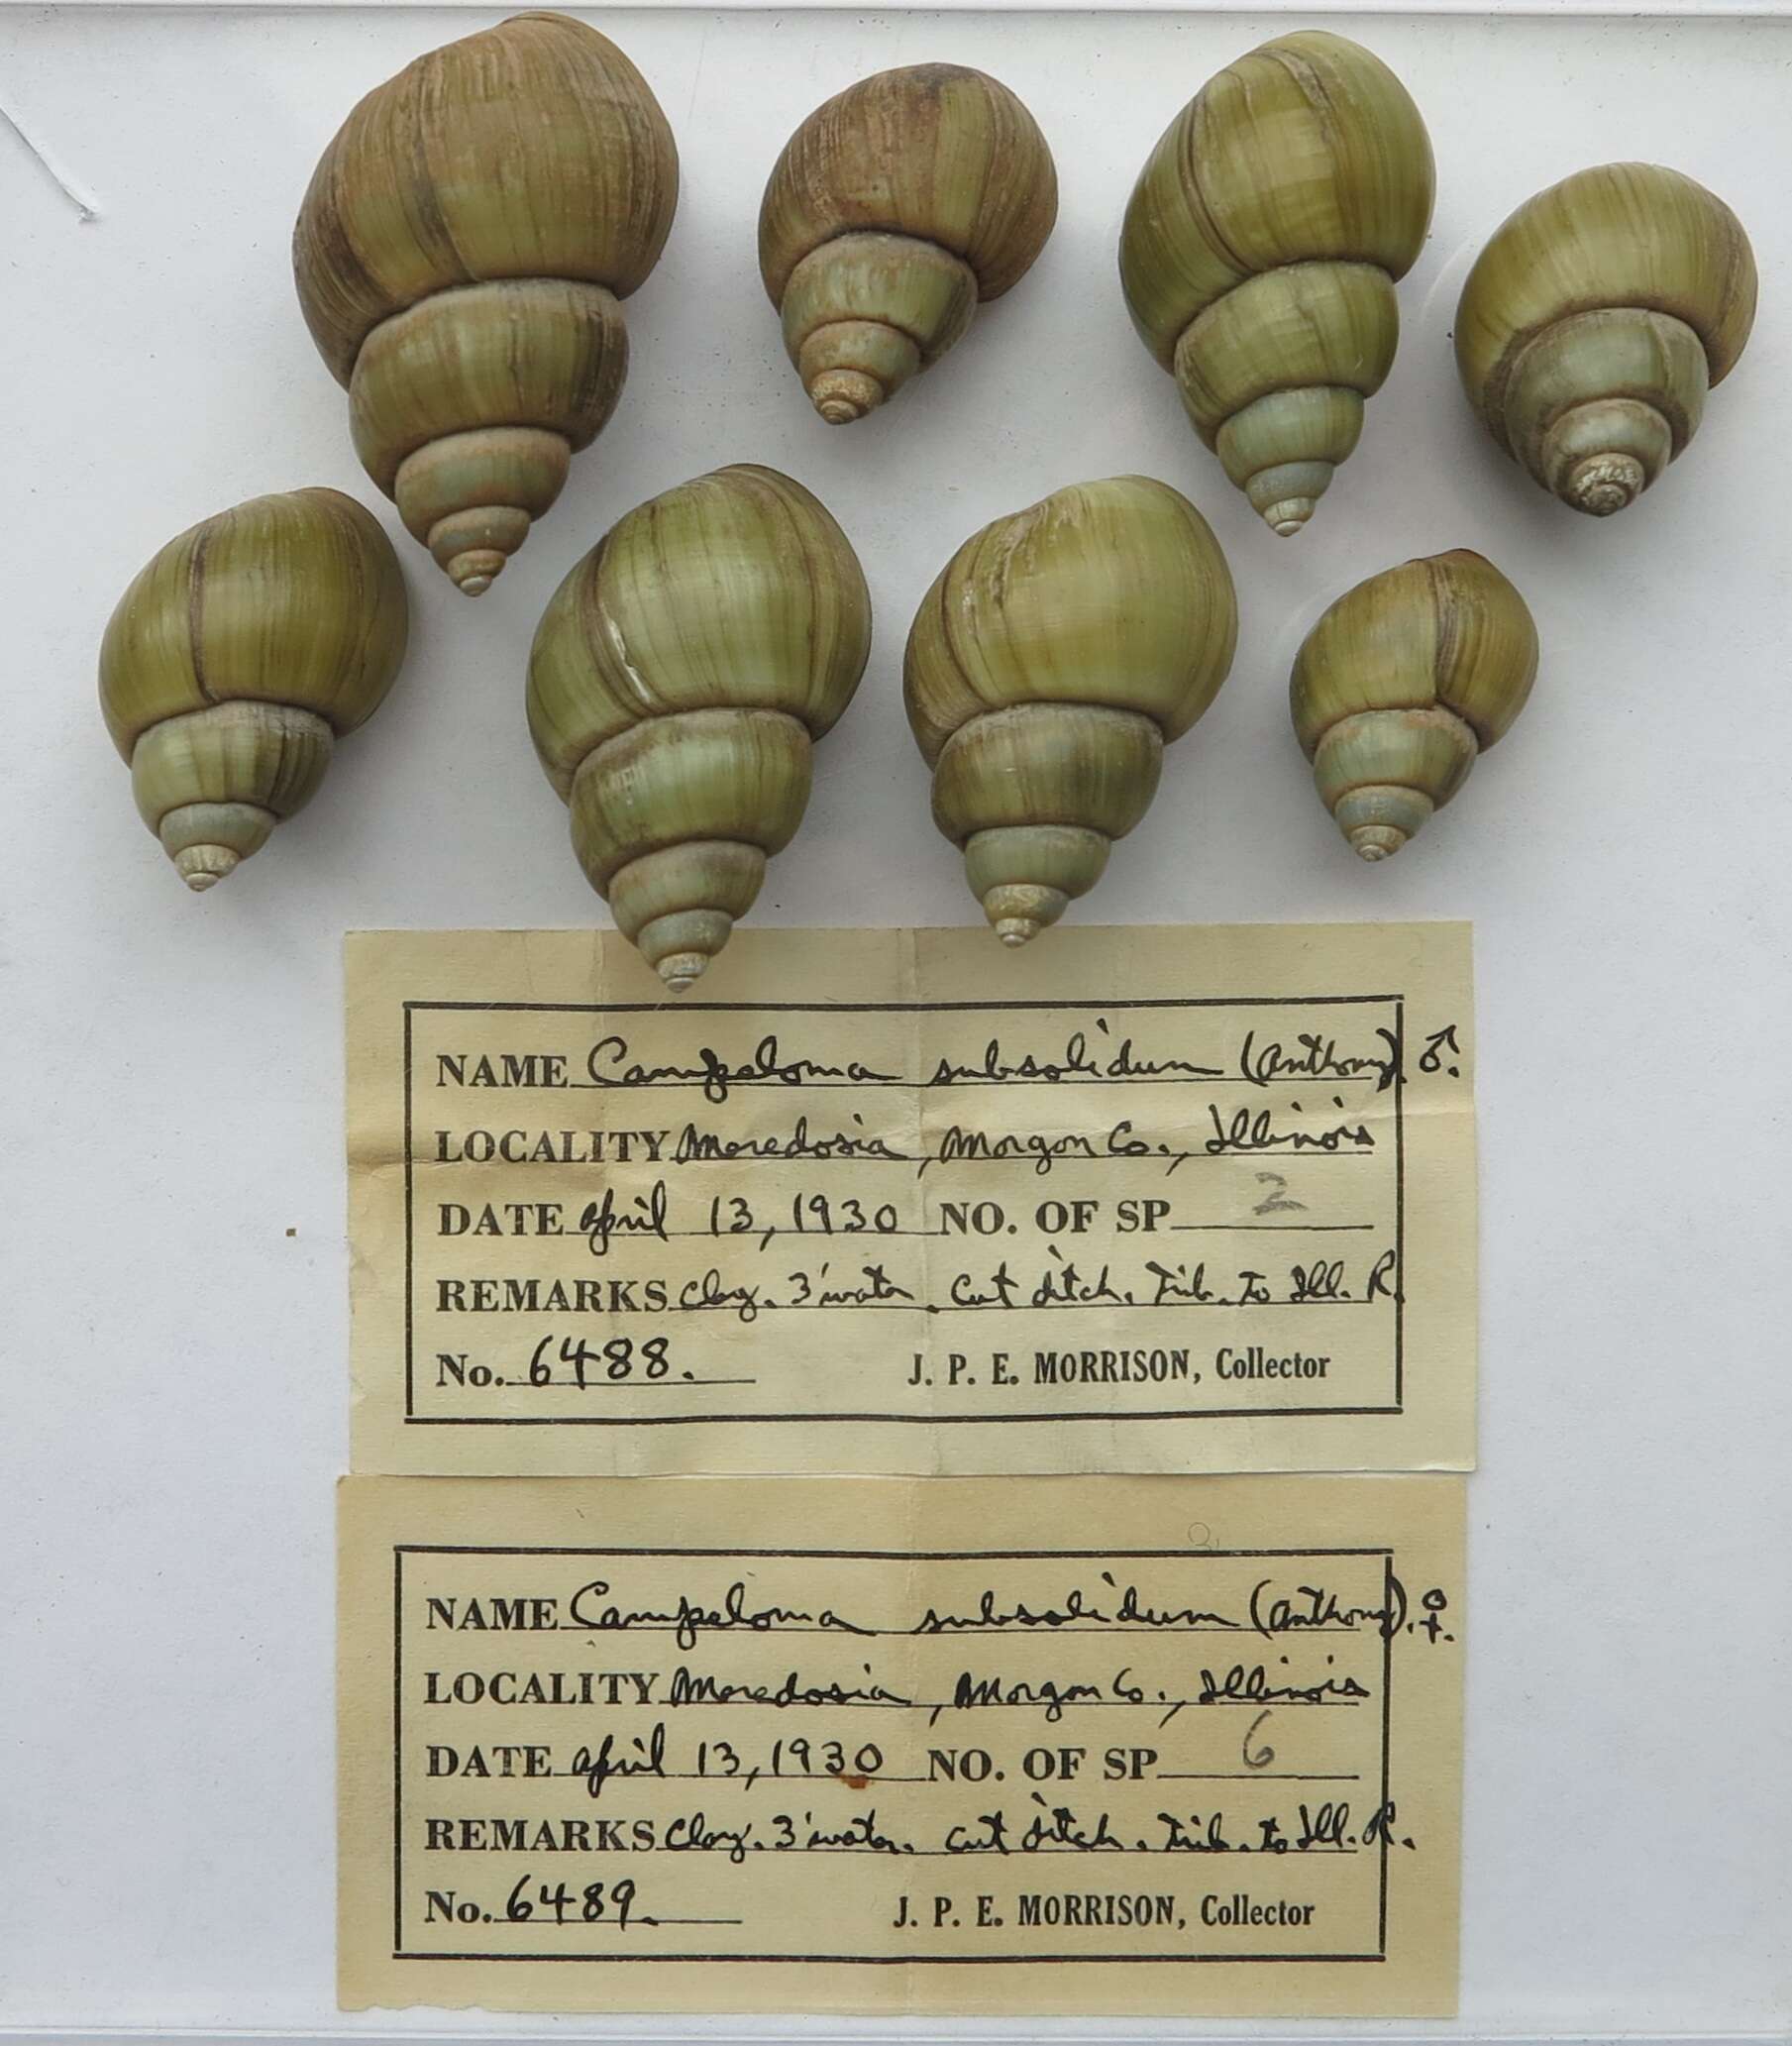 NAME Campeloma subsolidum (Anthony). ♂.
LOCALITY Meredosia, Morgan Co., Illinois
DATE April 13, 1930 NO. OF SP 2
REMARKS Clay. 3' water. Cut ditch. Trib. to Ill. R.
No. 6488. J. P. E. MORRISON, Collector
NAME Campeloma subsolidum (Anthony). ♀.
LOCALITY Meredosia, Morgan Co., Illinois
DATE April 13, 1930 NO. OF SP 6
REMARKS Clay. 3' water. Cut ditch. Trib. to Ill. R.
No. 6489. J. P. E. MORRISON, Collector